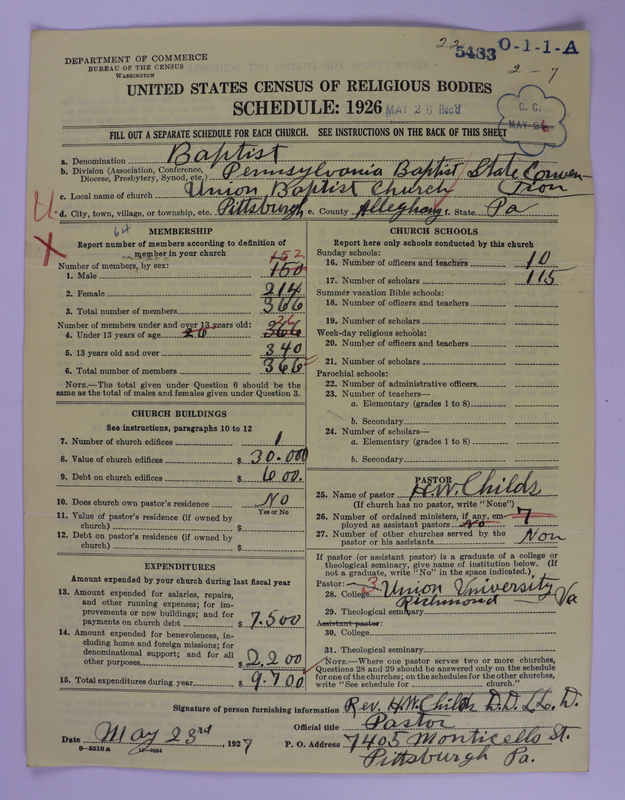 22 5483 0-1-1-A
DEPARTMENT OF COMMERCE
BUREAU OF THE CENSUS
WASHINGTON
2-7
UNITED STATES CENSUS OF RELIGIOUS BODIES
SCHEDULE: 1926 MAY 26 Rec'd
C. C.
MAY 26
FILL OUT A SEPARATE SCHEDULE FOR EACH CHURCH. SEE INSTRUCTIONS ON THE BACK OF THIS SHEET
a. Denomination Baptist
b. Division (Association, Conference, Diocese, Presbytery, Synod, etc.) Pennsylvania Baptist State Conven-
tion
c. Local name of church Union Baptist Church
d. City, town, village, or township, etc. Pittsburgh e. County Allegheny f. State Pa
64
MEMBERSHIP
Report number of members according to definition of
member in your church
Number of members, by sex: 152
1. Male 150
2. Female 214
3. Total number of members 366
Number of members under and over 13 years old: 26
4. Under 13 years of age 26 366
5. 13 years old and over 340
6. Total number of members 366
NOTE.—The total given under Question 6 should be the
same as the total of males and females given under Question 3.
CHURCH BUILDINGS
See instructions, paragraphs 10 to 12
7. Number of church edifices 1
8. Value of church edifices $ 30.000
9. Debt on church edifices $ 600.
10. Does church own pastor's residence No
Yes or No
11. Value of pastor's residence (if owned by
church) $
12. Debt on pastor's residence (if owned by
church) $
EXPENDITURES
Amount expended by your church during last fiscal year
13. Amount expended for salaries, repairs,
and other running expenses; for im-
provements or new buildings; and for
payments on church debt $ 7.500
14. Amount expended for benevolences, in-
cluding home and foreign missions; for
denominational support; and for all
other purposes $ 2.200
15. Total expenditures during year $ 9.700
CHURCH SCHOOLS
Report here only schools conducted by this church
Sunday schools:
16. Number of officers and teachers 10
17. Number of scholars 115
Summer vacation Bible schools:
18. Number of officers and teachers
19. Number of scholars
Week-day religious schools:
20. Number of officers and teachers
21. Number of scholars
Parochial schools:
22. Number of administrative officers
23. Number of teachers—
a. Elementary (grades 1 to 8)
b. Secondary
24. Number of scholars—
a. Elementary (grades 1 to 8)
b. Secondary
PASTOR
25. Name of pastor H.W. Childs
(If church has no pastor, write "None")
26. Number of ordained ministers, if any, em-
ployed as assistant pastors No 7
27. Number of other churches served by the
pastor or his assistants Non
If pastor (or assistant pastor) is a graduate of a college or
theological seminary, give name of institution below. (If
not a graduate, write "No" in the space indicated.)
Pastor: 3
28. College Union University
Richmond Va
29. Theological seminary
Assistant pastor:
30. College
31. Theological seminary
NOTE.—Where one pastor serves two or more churches,
Questions 28 and 29 should be answered only on the schedule
for one of the churches; on the schedules for the other churches,
write "See schedule for church."
Signature of person furnishing information Rev. H.W. Childs D.D. LL. D.
Official title Pastor
Date May 23rd, 1927 P. O. Address 7405 Monticello St.
8—5518a 11—9064 Pittsburgh Pa.